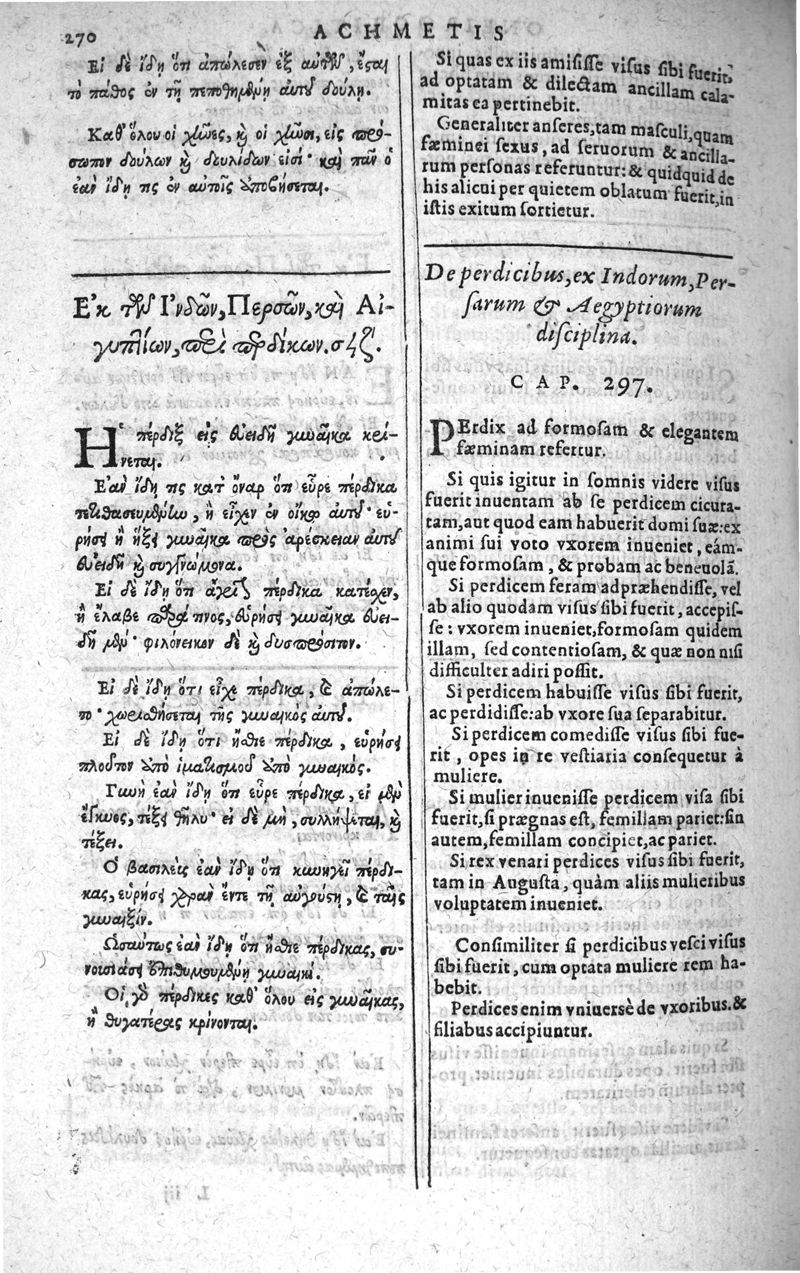 270
ACHMETIS
Εἰ δὲ ἴδῃ ὅτι ἀπώλεσεν ἐξ αὐτῶν, ἔσται
τὸ πάθος ἐν τῇ πεποθημένῃ αὐτοῦ δούλῃ.
Καθ' ὅλου οἱ χῆνες, καὶ οἱ χῆνοι, εἰς πρό-
σωπον δούλων καὶ δουλίδων εἰσί· καὶ πᾶν ὃ
ἐὰν ἴδῃ τις ἐν αὐτοῖς ἀποβήσεται.
Ἐκ τῶν Ἰνδῶν, Περσῶν, καὶ Αἰ-
γυπτίων, περὶ περδίκων. σϟζ΄.
Ἡ πέρδιξ εἰς εὐειδῆ γυναῖκα κρί-
νεται.
Ἐὰν ἴδῃ τις κατ' ὄναρ ὅτι εὗρε πέρδικα
τετιθασευμένην, ἢ εἶχεν ἐν οἴκῳ αὐτοῦ· εὑ-
ρήσει ἢ ἥξει γυναῖκα πρὸς ἀρέσκειαν αὐτοῦ
εὐειδῆ καὶ συγγνώμονα.
Εἰ δὲ ἴδῃ ὅτι ἀγρίαν πέρδικα κατέχεν,
ἢ ἔλαβε παρά τινος, εὑρήσει γυναῖκα εὐει-
δῆ μέν· φιλόνεικον δὲ καὶ δυσπρόσιτον.
Εἰ δὲ ἴδῃ ὅτι εἶχε πέρδικα, καὶ ἀπώλε-
το· χωρισθήσεται τῆς γυναικὸς αὐτοῦ.
Εἰ δὲ ἴδῃ ὅτι ἤσθιε πέρδικα, εὑρήσει
πλοῦτον ἀπὸ ἱματισμοῦ ἀπὸ γυναικός.
Γυνὴ ἐὰν ἴδῃ ὅτι εὗρε πέρδικα, εἰ μὲν
ἔγκυος, τέξει θῆλυ· εἰ δὲ μὴ, συλλήψεται, καὶ
τέξει.
Ὁ βασιλεὺς ἐὰν ἴδῃ ὅτι κυνηγεῖ πέρδι-
κας, εὑρήσει χαρὰν ἔντε τῇ αὐγούστῃ, καὶ ταῖς
γυναιξίν.
Ὡσαύτως ἐὰν ἴδῃ ὅτι ἤσθιε πέρδικας, συ-
νουσιάσει ἐπιθυμουμένῃ γυναικί.
Οἱ γὰρ πέρδικες καθ' ὅλου εἰς γυναῖκας,
ἢ θυγατέρας κρίνονται.
Si quas ex iis amisisse visus sibi fuerit,
ad optatam & dilectam ancillam cala-
mitas ea pertinebit.
Generaliter anseres, tam masculi, quam
fæminei sexus, ad seruorum & ancilla-
rum personas referuntur: & quidquid de
his alicui per quietem oblatum fuerit, in
istis exitum sortietur.
De perdicibus, ex Indorum, Per-
sarum & Aegyptiorum
disciplina.
CAP. 297.
PErdix ad formosam & elegantem
fæminam refertur.
Si quis igitur in somnis videre visus
fuerit inuentam ab se perdicem cicura-
tam, aut quod eam habuerit domi suæ: ex
animi sui voto vxorem inueniet, eám-
que formosam, & probam ac beneuolã.
Si perdicem feram adpræhendisse, vel
ab alio quodam visus sibi fuerit, accepis-
se: vxorem inueniet, formosam quidem
illam, sed contentiosam, & quæ non nisi
difficulter adiri possit.
Si perdicem habuisse visus sibi fuerit,
ac perdidisse: ab vxore sua separabitur.
Si perdicem comedisse visus sibi fue-
rit, opes in re vestiaria consequetur à
muliere.
Si mulier inuenisse perdicem visa sibi
fuerit, si prægnas est, femillam pariet: sin
autem, femillam concipiet, ac pariet.
Si rex venari perdices visus sibi fuerit,
tam in Augusta, quàm aliis mulieribus
voluptatem inueniet.
Consimiliter si perdicibus vesci visus
sibi fuerit, cum optata muliere rem ha-
bebit.
Perdices enim vniuersè de vxoribus &
filiabus accipiuntur.